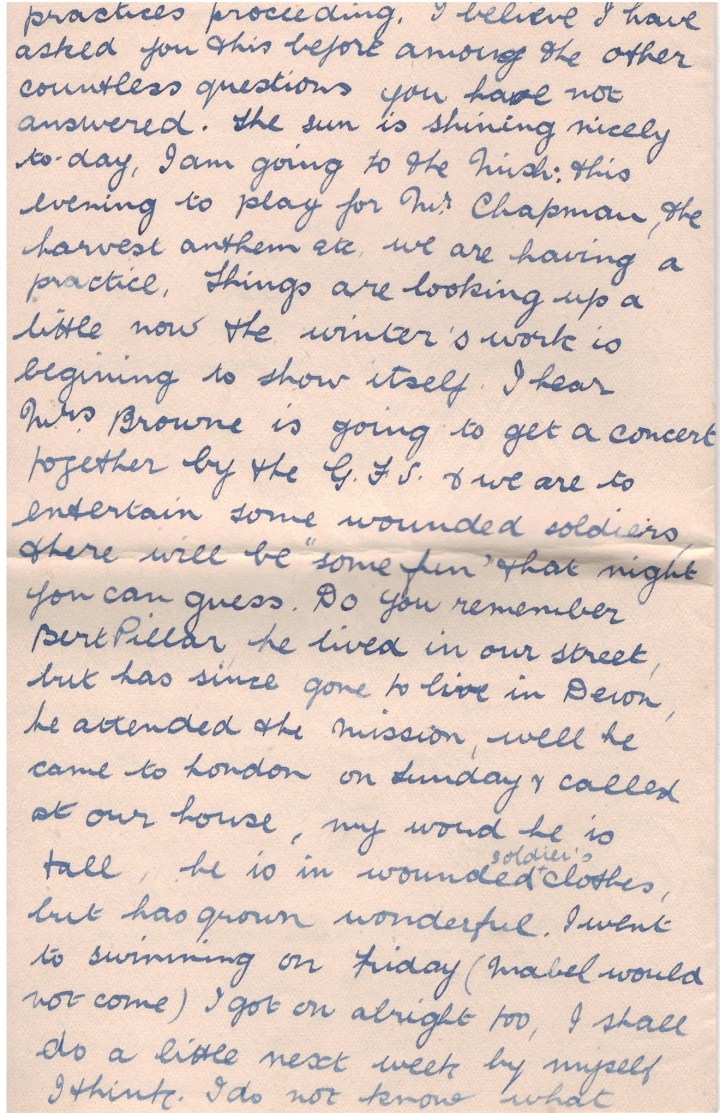 practices proceeding. I believe I have
asked you this before among the other
countless questions you have not
answered. The sun is shining nicely
to-day, I am going to the Mish: this
evening to play for Mr. Chapman, the
harvest anthem etc. we are having a
practice. Things are looking up a
little now the winter's work is
begining to show itself. I hear
Mrs. Browne is going to get a concert
together by the G.F.S. & we are to
entertain some wounded soldiers,
there will be "some fun" that night
you can guess. Do you remember
Bert Pillar, he lived in our street,
but has since gone to live in Devon,
he attended the Mission, well he
came to London on Sunday & called
at our house, my word he is
tall, he is in wounded soldier's clothes,
but has grown wonderful. I went
to swimming on Friday (Mabel would
not come) I got on alright too, I shall
do a little next week by myself
I think. I do not know what